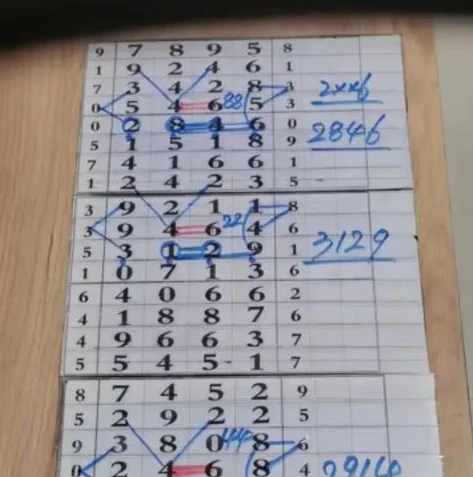 9 7 8 9 5 8
1 9 2 4 6 1
7 3 4 2 8 3 2xx6
0 5 4 6 88 5 3
0 2 8 4 6 0 2846
5 1 5 1 8 9
7 4 1 6 6 1
1 2 4 2 3 5
3 9 2 1 1 8
3 9 4 6 22 4 6
5 3 1 2 9 1 3129
1 0 7 1 3 6
6 4 0 6 6 2
4 1 8 8 7 6
4 9 6 6 3 7
5 5 4 5 1 7
8 7 4 5 2 9
5 2 9 2 2 5
9 3 8 0 44 8 6
0 2 4 6 8 4